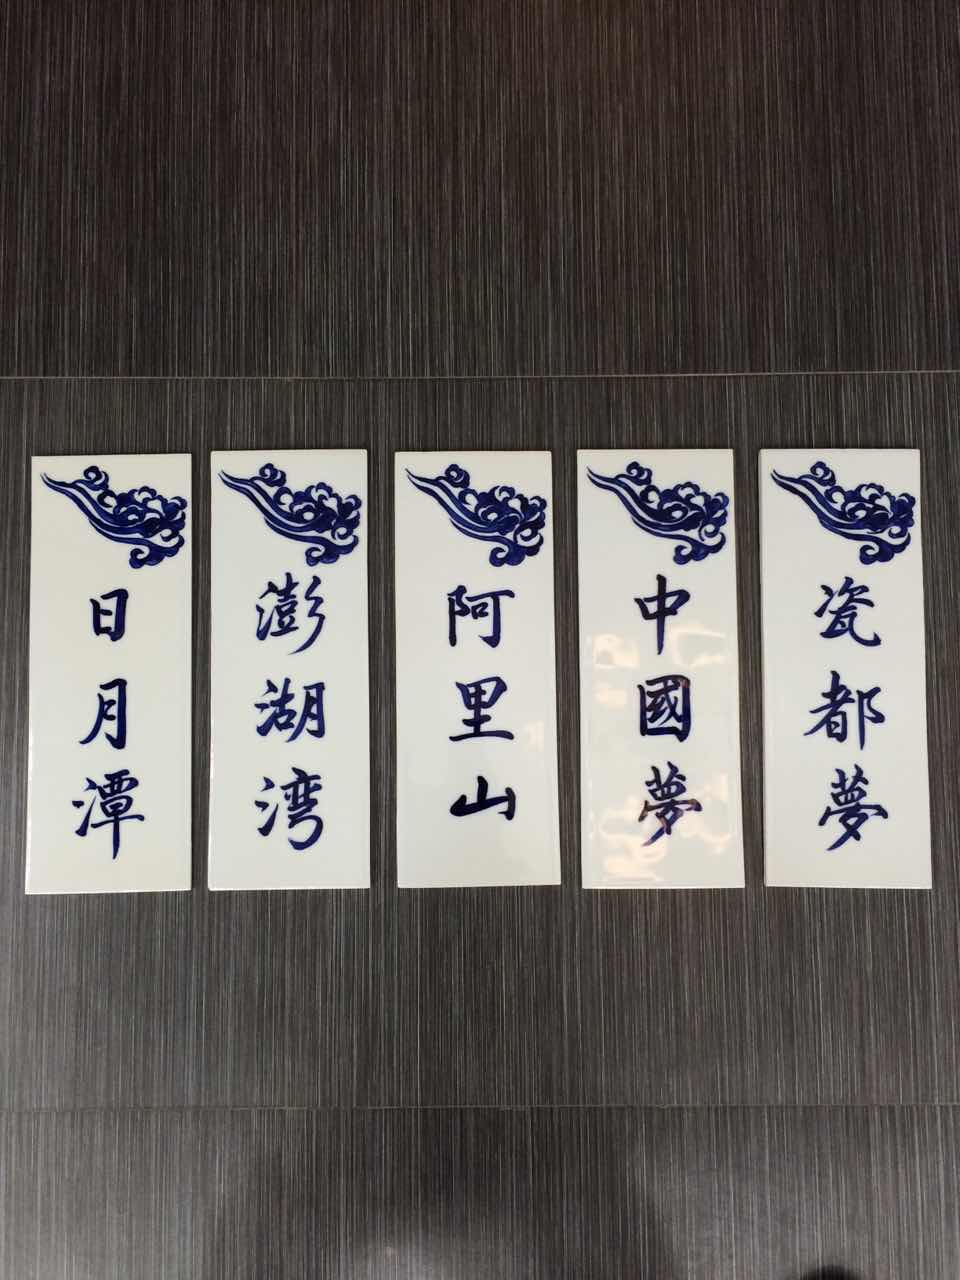 日月潭
澎湖湾
阿里山
中國夢
瓷都夢